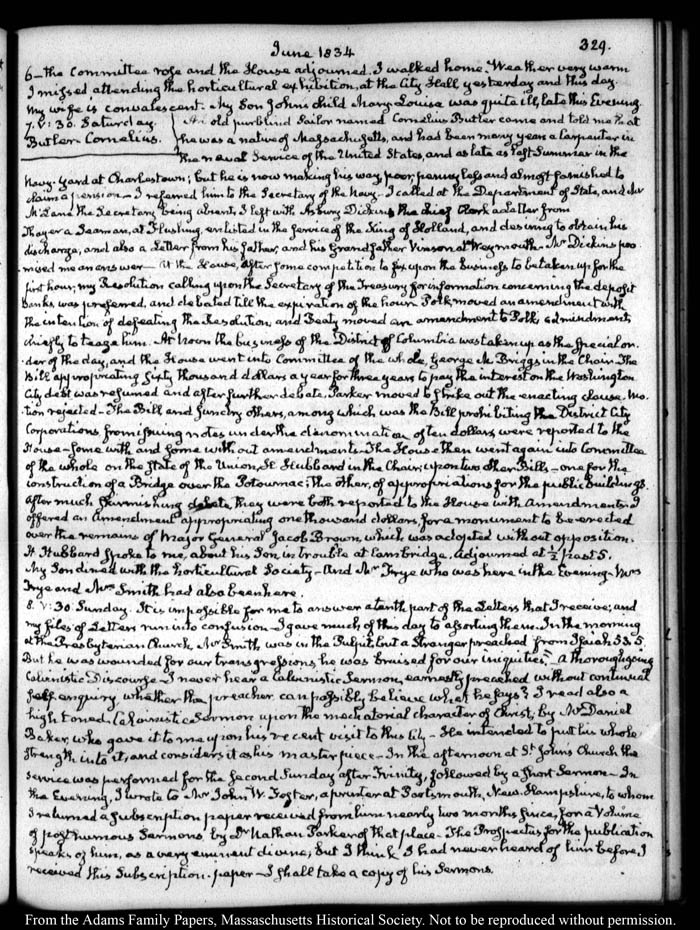 June 1834
329.
6 – the Committee rose and the House adjourned. I walked home. Weather very warm
I missed attending the horticultural exhibition, at the City Hall yesterday and this day.
My wife is convalescent. My Son John's child Mary Louisa was quite ill, late this Evening.
7. V: 30. Saturday. An old purblind Sailor named Cornelius Butler came and told me that
Butler Cornelius. he was a native of Massachusetts, and had been many years a Carpenter in
the naval Service of the United States, and as late as last Summer in the
Navy-yard at Charlestown; but he is now making his way, poor, pennyless and almost famished to
claim a pension. I referred him to the Secretary of the Navy. I called at the Department of State, and Mr
McLane the Secretary being absent, I left with Asbury Dickins the chief Clerk a Letter from
Thayer a Seaman, at Flushing, enlisted in the service of the King of Holland, and desiring to obtain his
discharge, and also a Letter from his father, and his Grandfather Vinson at Weymouth. Mr Dickins pro-
mised me an answer – At the House, after some competition to fix upon the business to be taken up for the
first hour, my Resolution calling upon the Secretary of the Treasury for information concerning the deposit
banks was preferred, and debated till the expiration of the hour. Polk moved an amendment with
the intention of defeating the Resolution, and Beaty moved an amendment to Polk's amendment,
chiefly to teaze him. At Noon the business of the District of Columbia was taken up as the special or-
der of the day, and the House went into Committee of the whole, George N. Briggs in the Chair. The
Bill appropriating sixty thousand dollars a year for three years to pay the interest on the Washington
City debt was resumed and after further debate, Parker moved to strike out the enacting clause. Mo-
tion rejected – The Bill and sundry others, among which was the Bill prohibiting the District City
Corporations from issuing notes under the denomination of ten dollars, were reported to the
House – some with and some without amendments. The House then went again into Committee
of the whole on the State of the Union, H. Hubbard in the Chair, upon two other Bills – one for the
construction of a Bridge over the Potowmac; the other, of appropriations for the public buildings.
After much skirmishing debate, they were both reported to the House with Amendments. I
offered an Amendment appropriating one thousand dollars, for a monument to be erected
over the remains of Major General Jacob Brown, which was adopted without opposition.
H. Hubbard spoke to me, about his Son, in trouble at Cambridge. Adjourned at ½ past 5.
My Son dined with the Horticultural Society – And Mr Frye who was here in the Evening – Mrs
Frye and Mrs Smith had also been here.
8. V: 30. Sunday. It is impossible for me to answer a tenth part of the Letters that I receive; and
my files of Letters run into confusion – I gave much of this day to assorting them. In the morning
at the Presbyterian Church Mr Smith was in the Pulpit, but a Stranger preached from Isaiah 53.5
But he was wounded for our transgressions, he was bruised for our iniquities," – a thorough going
Calvinistic Discourse – I never hear a Calvinistic Sermon, earnestly preached without continual
self-enquiry whether the preacher can possibly believe what he says? I read also a
high toned Calvinistic Sermon upon the mediatorial character of Christ, by Mr Daniel
Baker, who gave it to me upon his recent visit to this City. – He intended to put his whole
strength into it, and considers it as his master piece – In the afternoon at St John's Church the
service was performed for the second Sunday after Trinity, followed by a short Sermon – In
the Evening, I wrote to Mr John W. Foster, a printer at Portsmouth, New Hampshire, to whom
I returned a subscription paper received from him nearly two months since, for a Volume
of posthumous Sermons, by Dr Nathan Parker of that place – The Prospectus for the publication
speaks of him, as a very eminent divine, but I think I had never heard of him before, I
received this Subscription-paper – I shall take a copy of his Sermons.
From the Adams Family Papers, Massachusetts Historical Society. Not to be reproduced without permission.